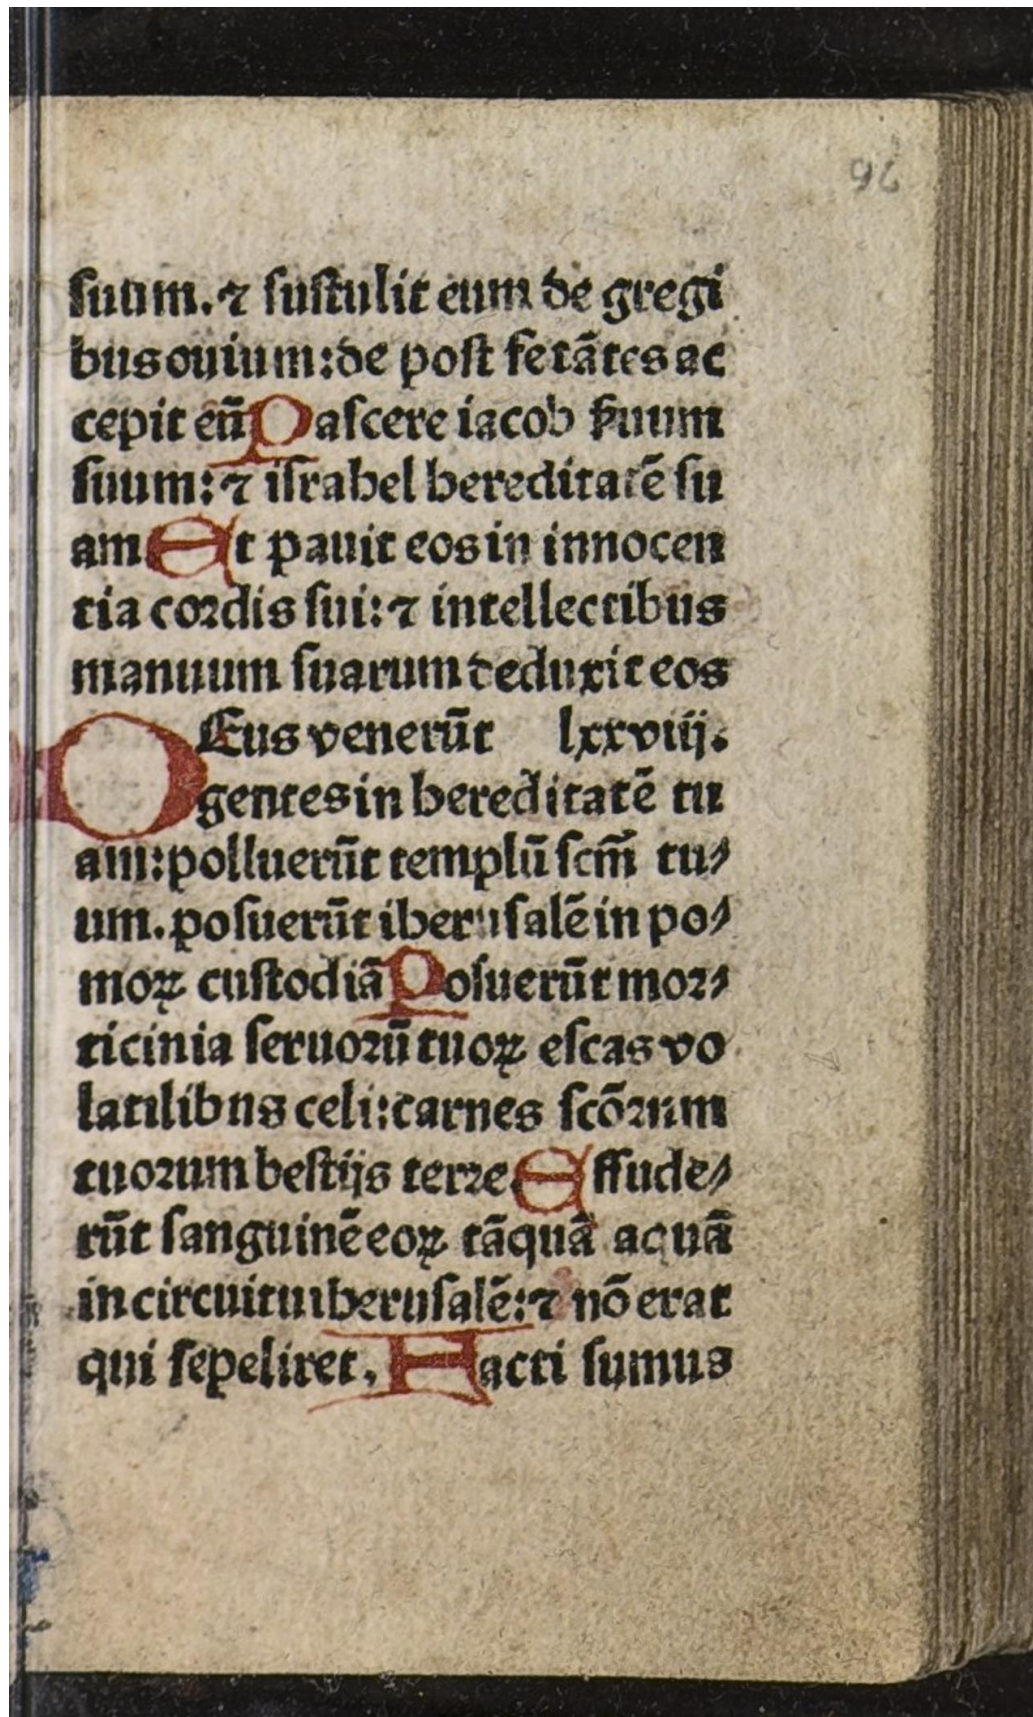 96
suum. ⁊ sustulit eum de gregi
bus ouium: de post fetãtes ac
cepit eũ Pascere iacob ẜuum
suum: ⁊ israhel hereditatẽ su
am Et pauit eos in innocen
tia cordis sui: ⁊ intellectibus
manuum suarum deduxit eos
DEus venerũt lxxviij.
gentes in hereditatẽ tu
am: polluerũt templũ scm̃ tu⸗
um. posuerũt iherusalẽ in po⸗
moꝝ custodiã Posuerũt mor⸗
ticinia seruorũ tuoꝝ escas vo
latilibus celi: carnes scõrum
tuorum bestijs terre Effude⸗
rũt sanguinẽ eoꝝ tãquã aquã
in circuitu iherusalẽ: ⁊ nõ erat
qui sepeliret. Facti sumus